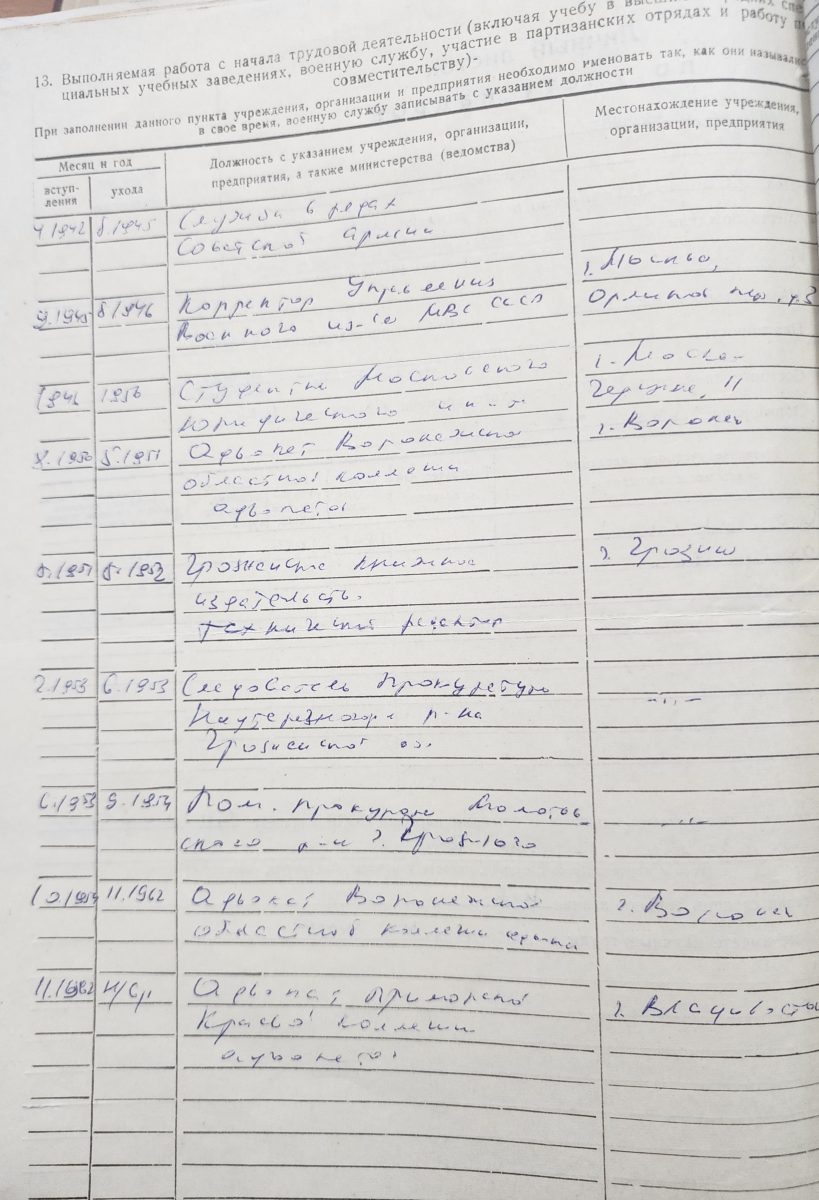 13. Выполняемая работа с начала трудовой деятельности (включая учебу в
циальных учебных заведениях, военную службу, участие в партизанских отрядах и работу
совместительству).
При заполнении данного пункта учреждения, организации и предприятия необходимо именовать так, как они называлис
в свое время, военную службу записывать с указанием должности
Месяц и год
вступ-
ления
ухода
Должность с указанием учреждения, организации,
предприятия, а также министерства (ведомства)
Местонахождение учреждения,
организации, предприятия
4.1942 8.1945 Служба в рядах
Советской Армии
9.1945 8.1946 Корректор Управления г. Москва,
Военного из-ва МВС СССР
1946 1950 Студентка Московского г. Москва
юридического ин-та Герцена, 11
8.1950 5.1951 Адвокат Воронежской г. Воронеж
областной коллегии
адвокатов
5.1951 1953 Грозненское книжное г. Грозный
издательство
технический редактор
2.1953 6.1953 Следователь прокуратуры —„—
Наутерского р-на
Грозненской об.
6.1953 9.1954 Пом. прокурора Молотов- —„—
ского р-на г. Грозного
10.1954 11.1962 Адвокат Воронежской г. Воронеж
областной коллегии
11.1962 н/вр Адвокат Приморской г. Владивосток
Краевой коллегии
адвокатов